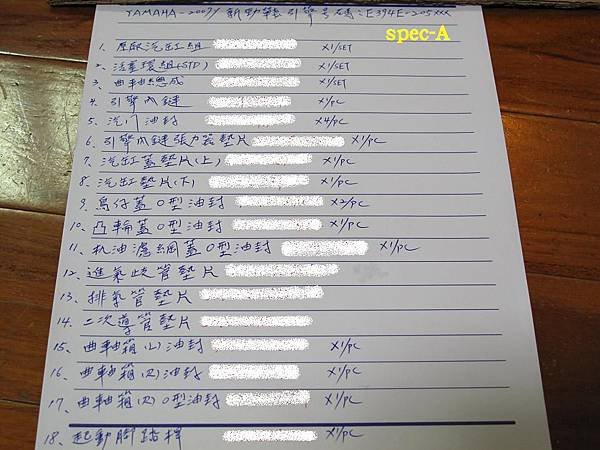 YAMAHA-2007/ 新勁戰 引擎号碼:E394E-205xxx
spec-A
1. 原廠汽缸組 x1/SET
2. 活塞環組(STD) x1/SET
3. 曲軸總成 x1/SET
4. 引擎內鏈 x1/PC
5. 汽门油封 x4/PC
6. 引擎內鏈張力器墊片 x1/PC
7. 汽缸蓋墊片(上) x1/PC
8. 汽缸墊片(下) x1/PC
9. 鳥仔蓋O型油封 x2/PC
10. 凸輪蓋O型油封 x1/PC
11. 机油濾網蓋O型油封 x1/PC
12. 進氣歧管墊片
13. 排氣管墊片
14. 二次導管墊片
15. 曲軸箱(L)油封 x1/PC
16. 曲軸箱(R)油封 x1/PC
17. 曲軸箱(R)O型油封 x1/PC
18. 起動腳踏桿 x1/PC